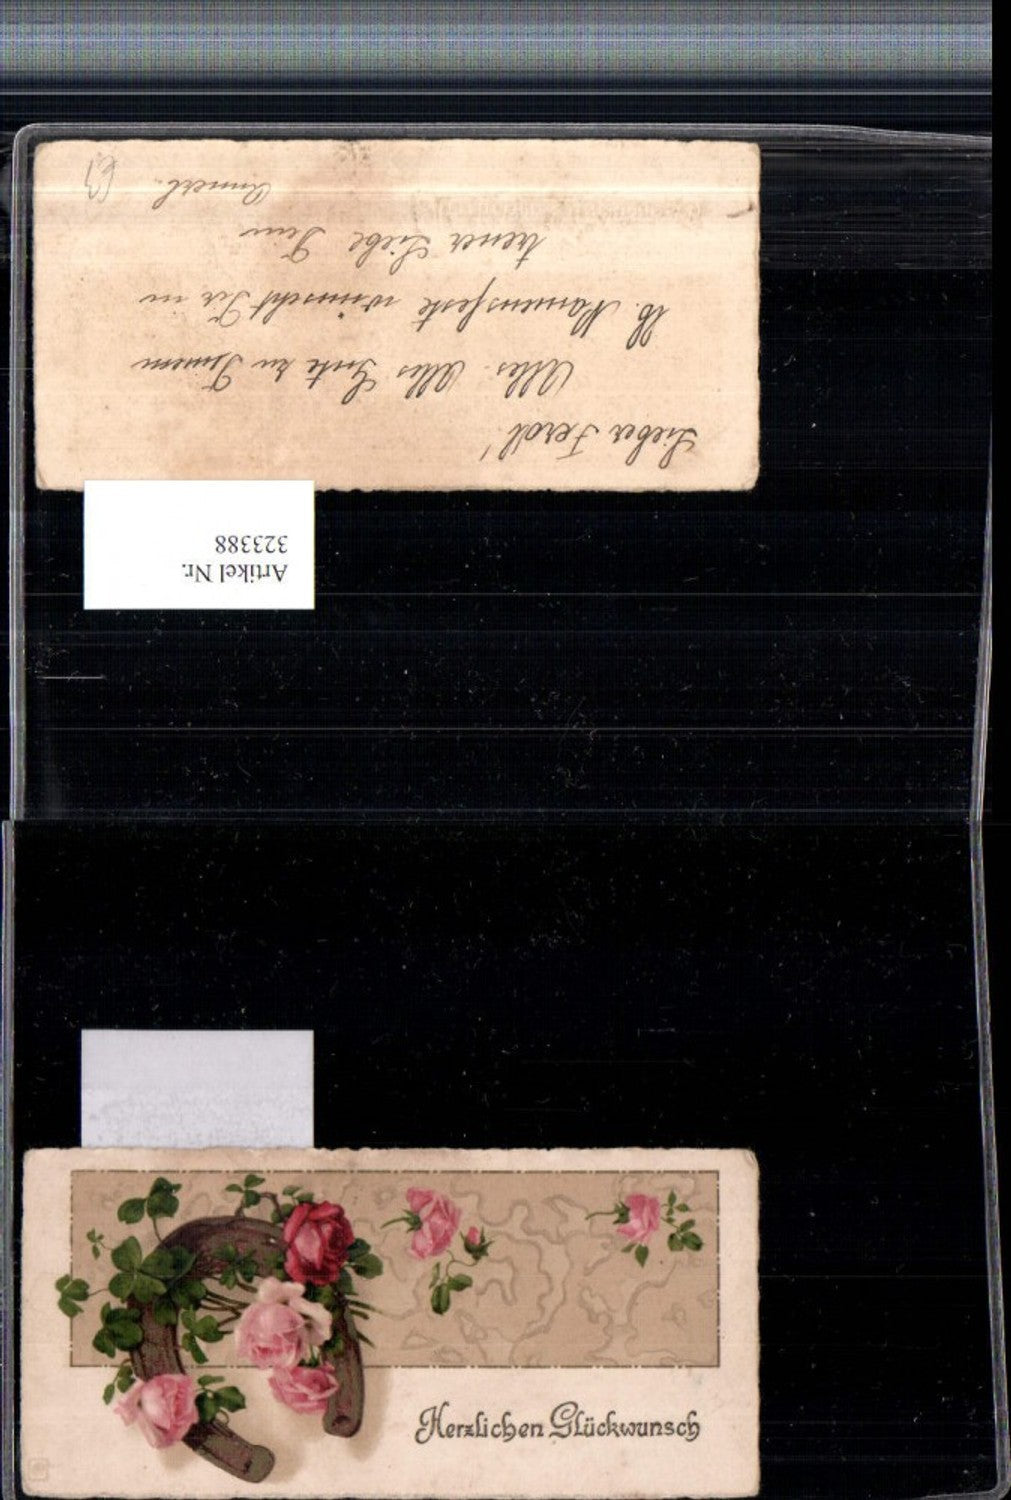 Lieber Ferdl!
Alles Alles Gute zu Deinem
lb. Namensfeste wünscht Dir in
treuer Liebe Dein
Annerl.
Artikel Nr.
323388
Herzlichen Glückwunsch